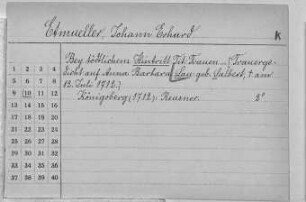 Etmueller, Johann Echard
k
Bey tödtlichem Hintritt Tit. Frauen ... (Trauerge-
dicht auf Anna Barbara Lau geb. Salbert, † am
13. Juli 1712.)
Königsberg (1712): Reusner. 2°
1 2 3 4
5 6 7 8
9 10 11 12
13 14 15 16
17 18 19 20
21 22 23 24
25 26 27 28
29 30 31 32
33 34 35 36
37 38 39 40